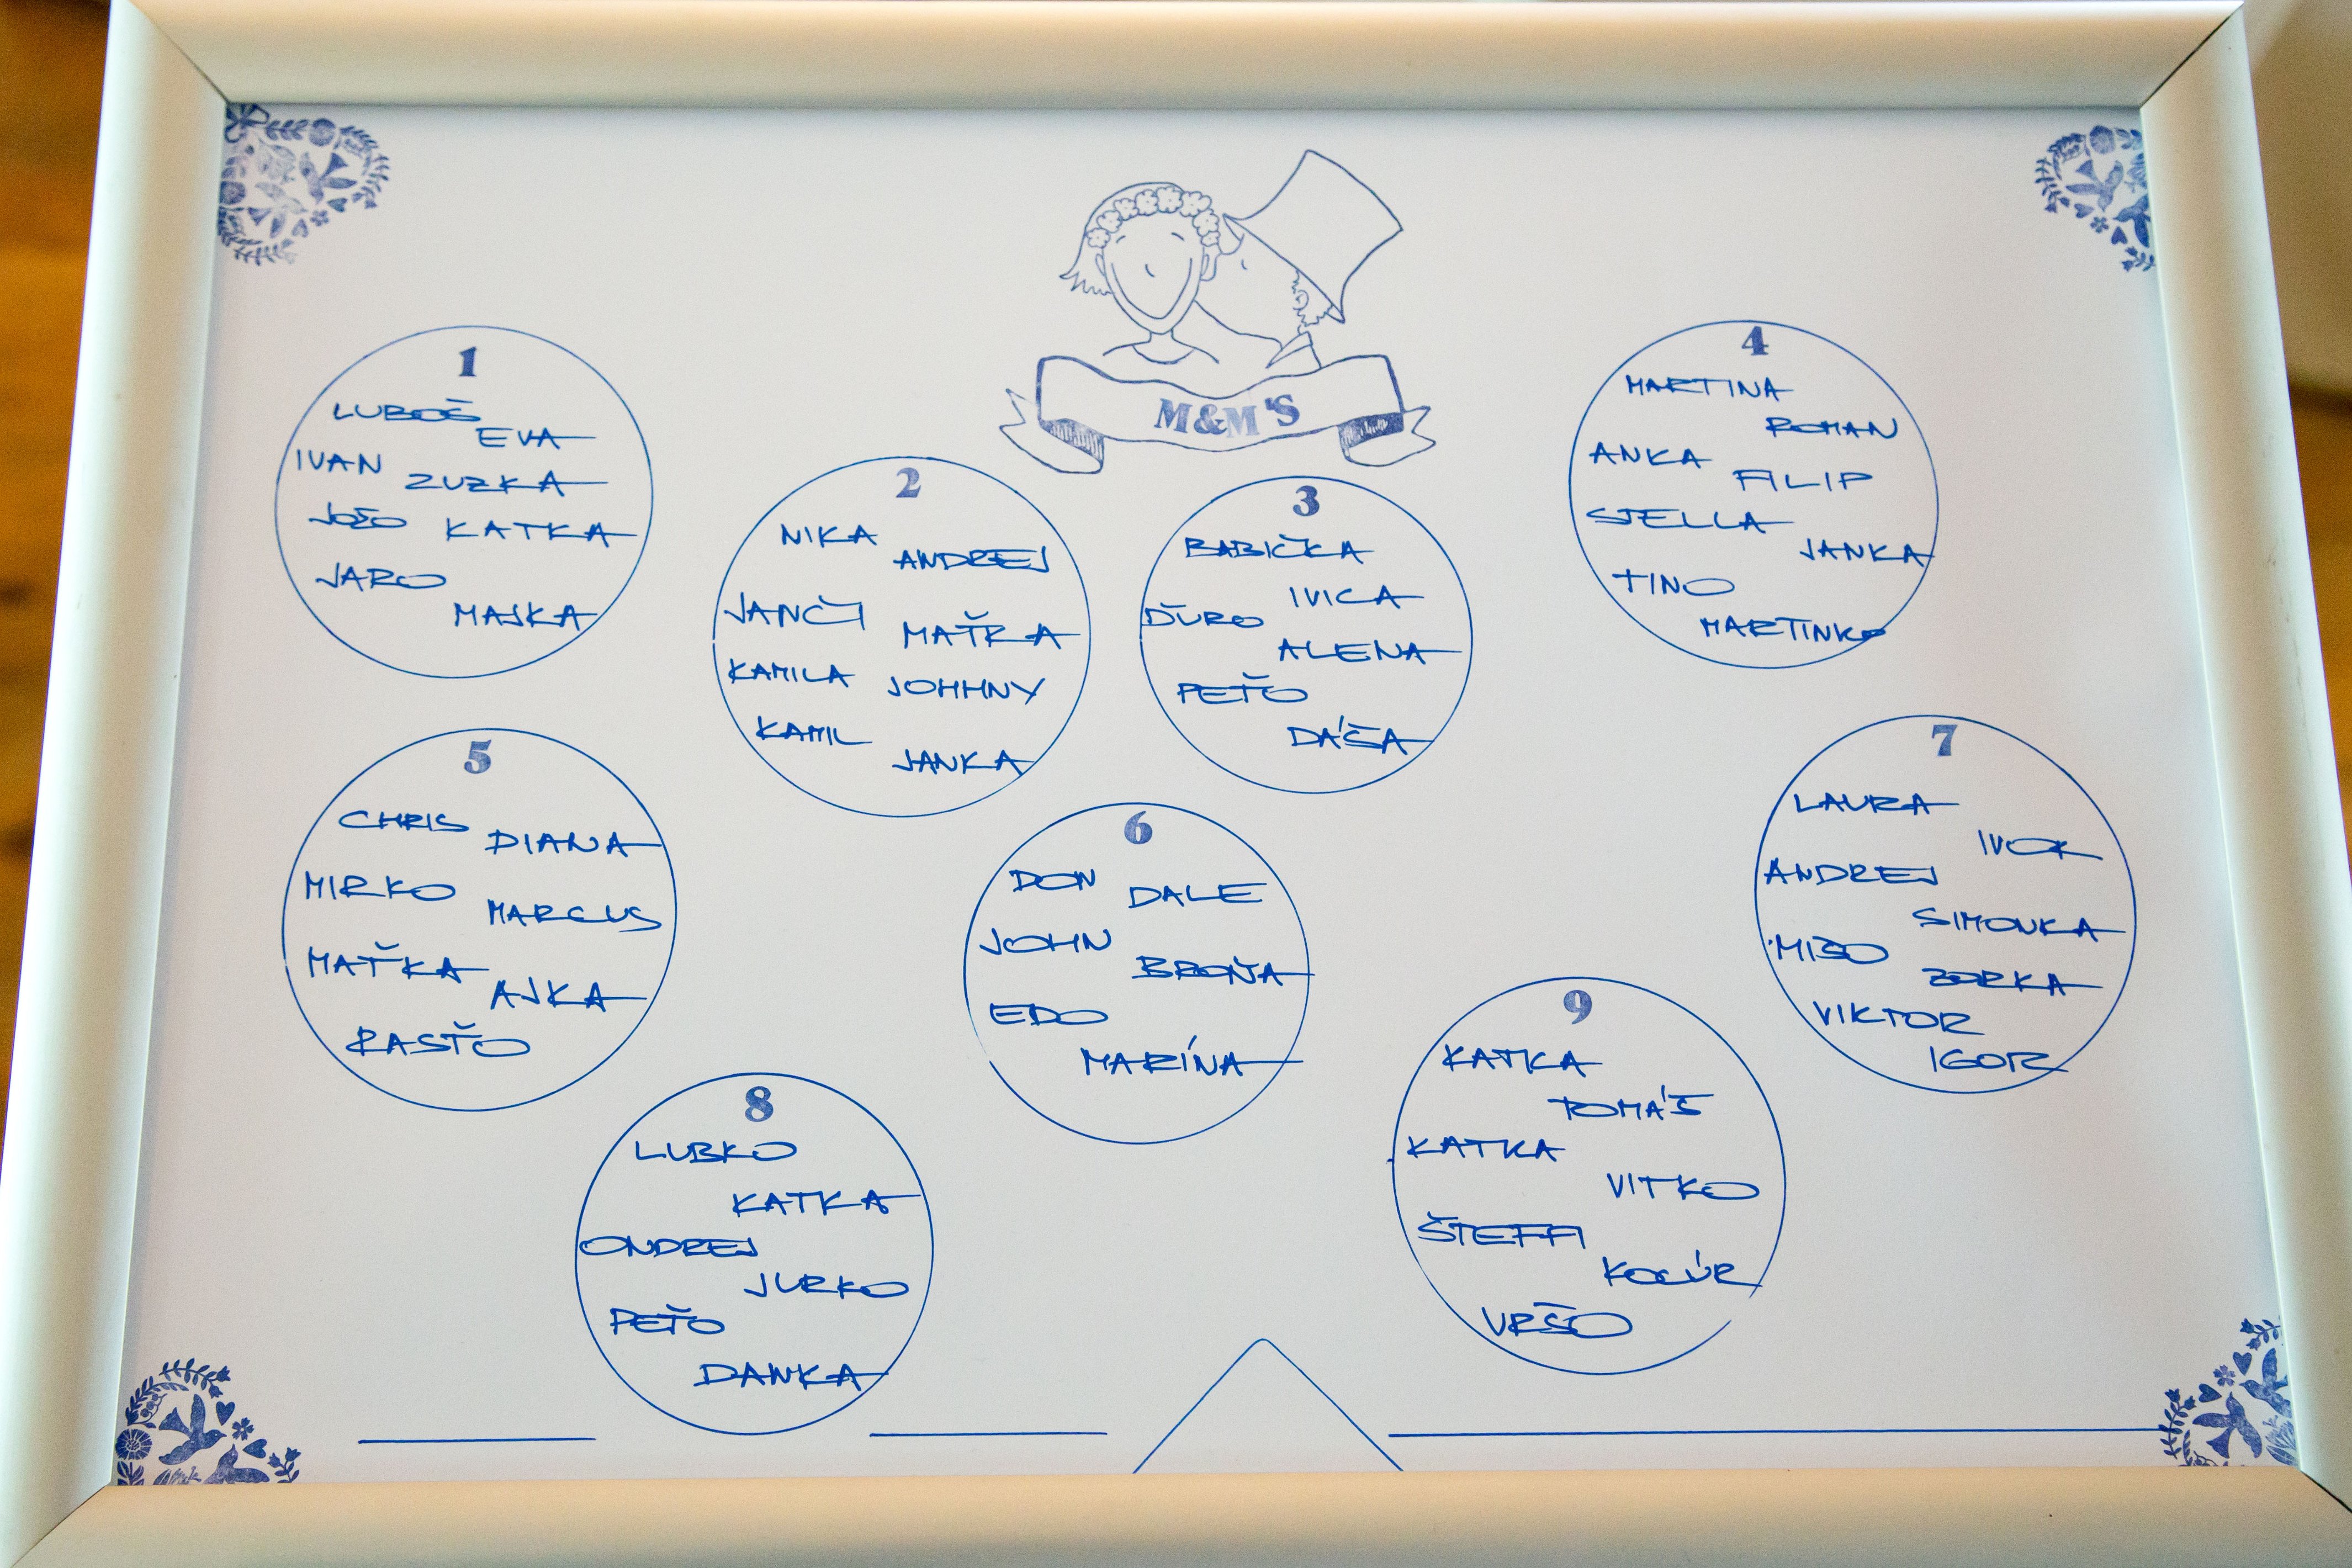 M&M'S
1
LUBOŠ
EVA
IVAN
ZUZKA
JOŠO
KATKA
JARO
MAJKA
2
NIKA
ANDREJ
JANČI
MAŤKA
KAMILA
JOHHNY
KAMIL
JANKA
3
BABIČKA
IVICA
ĎURO
ALENA
PEŤO
DÁŠA
4
MARTINA
ROMAN
ANKA
FILIP
STELLA
JANKA
TINO
MARTINKO
5
CHRIS
DIANA
MIRKO
MARCUS
MAŤKA
AJKA
RASŤO
6
DON
DALE
JOHN
BROŇA
EDO
MARÍNA
7
LAURA
IVOR
ANDREJ
SIMONKA
MIŠO
ZORKA
VIKTOR
IGOR
8
LUBKO
KATKA
ONDREJ
JURKO
PEŤO
DANKA
9
KATKA
TOMÁŠ
KATKA
VITKO
ŠTEFFI
KOCÚR
VRŠO